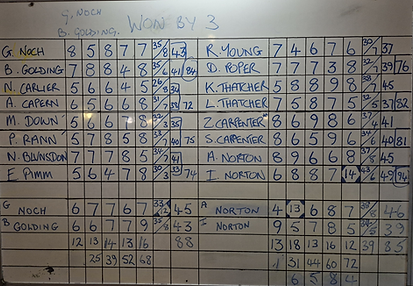 G. NOCH
B. GOLDING. WON BY 3
G. NOCH 8 5 8 7 7 35/8 43 R. YOUNG 7 4 6 7 6 30/7 37
B. GOLDING 7 8 8 4 8 35/6 41 84 D. POPER 7 7 7 3 8 32/7 39 76
N. CARLIER 5 6 6 4 5 34 K. THATCHER 5 8 8 9 8 45
A. CAPERN 5 6 6 6 8 38 72 L. THATCHER 7 5 8 7 5 37 82
M. DOWN 5 6 6 7 35 Z. CARPENTER 8 6 9 8 6 41
P. RANN 5 7 8 5 8 40 75 S. CARPENTER 8 6 5 9 6 34/6 40 81
N. BLUNSDON 7 7 7 8 5 34/7 41 A. NORTON 8 9 6 6 8 45
E PIMM 5 6 4 7 8 33 74 I. NORTON 6 8 8 7 14 43/6 49 94
G NOCH 6 7 7 6 7 33/12 45 A NORTON 4 13 6 8 7 38/8 46
B GOLDING 6 6 7 7 9 35/8 43 I NORTON 9 5 7 8 5 39
12 13 14 13 16 88 13 18 13 16 12 39 85
25 39 52 68 31 44 60 72
6 5 8 4